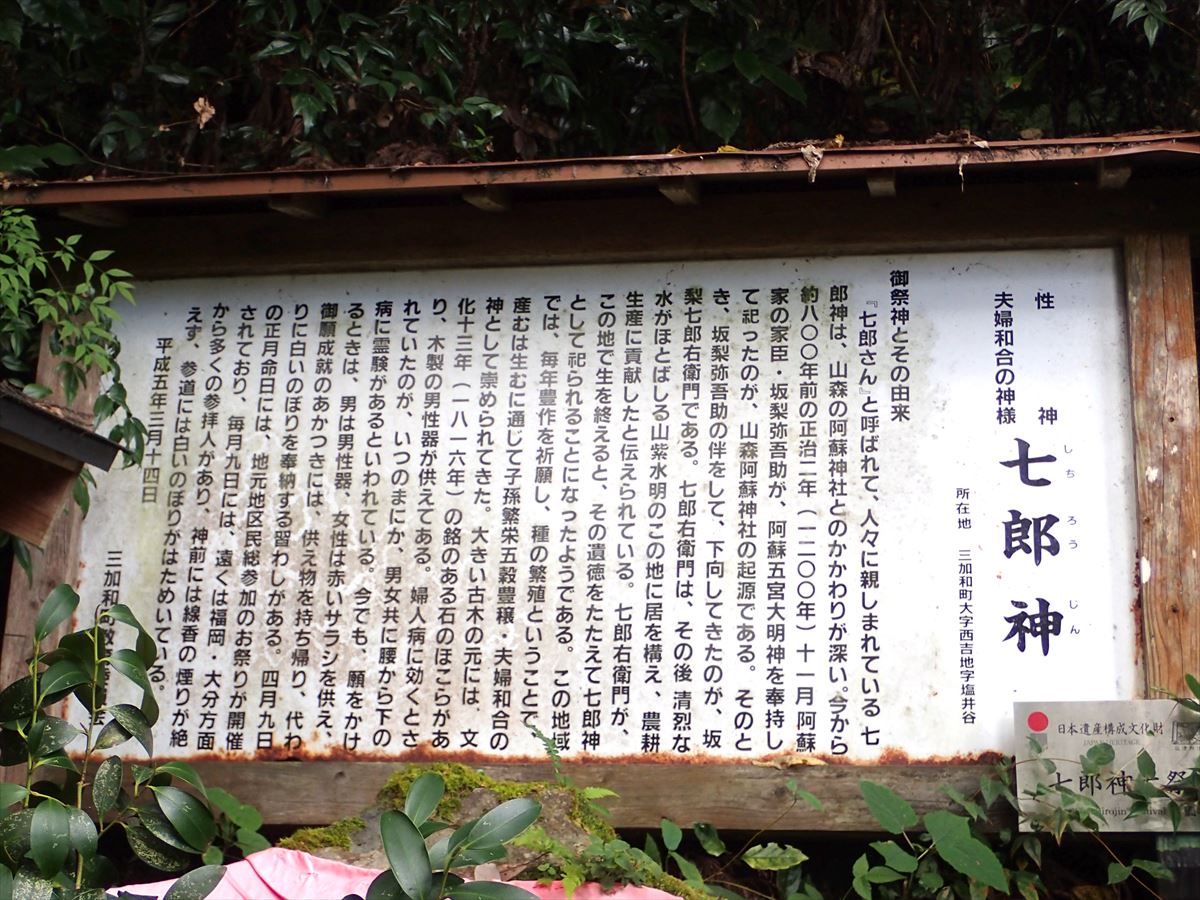 性神
しちろうじん
七郎神
夫婦和合の神様
所在地 三加和町大字西吉地字塩井谷
御祭神とその由来
『七郎さん』と呼ばれて、人々に親しまれている七
郎神は、山森の阿蘇神社とのかかわりが深い。今から
約八〇〇年前の正治二年(一二〇〇年)十一月阿蘇
家の家臣・坂梨弥吾助が、阿蘇五宮大明神を奉持し
て祀ったのが、山森阿蘇神社の起源である。そのと
き、坂梨弥吾助の伴をして、下向してきたのが、坂
梨七郎右衛門である。七郎右衛門は、その後清烈な
水がほとばしる山紫水明のこの地に居を構え、農耕
生産に貢献したと伝えられている。七郎右衛門が、
この地で生を終えると、その遺徳をたたえて七郎神
として祀られることになったようである。この地域
では、毎年豊作を祈願し、種の繁殖ということで
産むは生むに通じて子孫繁栄五穀豊穣・夫婦和合の
神として崇められてきた。大きい古木の元には、文
化十三年(一八一六年)の銘のある石のほこらがあ
り、木製の男性器が供えてある。婦人病に効くとさ
れていたのが、いつのまにか、男女共に腰から下の
病に霊験があるといわれている。今でも、願をかけ
るときは、男は男性器、女性は赤いサラシを供え、
御願成就のあかつきには、供え物を持ち帰り、代わ
りに白いのぼりを奉納する習わしがある。四月九日
の正月命日には、地元地区民総参加のお祭りが開催
されており、毎月九日には、遠くは福岡・大分方面
から多くの参拝人があり、神前には線香の煙りが絶
えず、参道には白いのぼりがはためいている。
平成五年三月十四日
三加和町教
日本遺産構成文化財
JAPAN HERITAGE
七郎神 祭